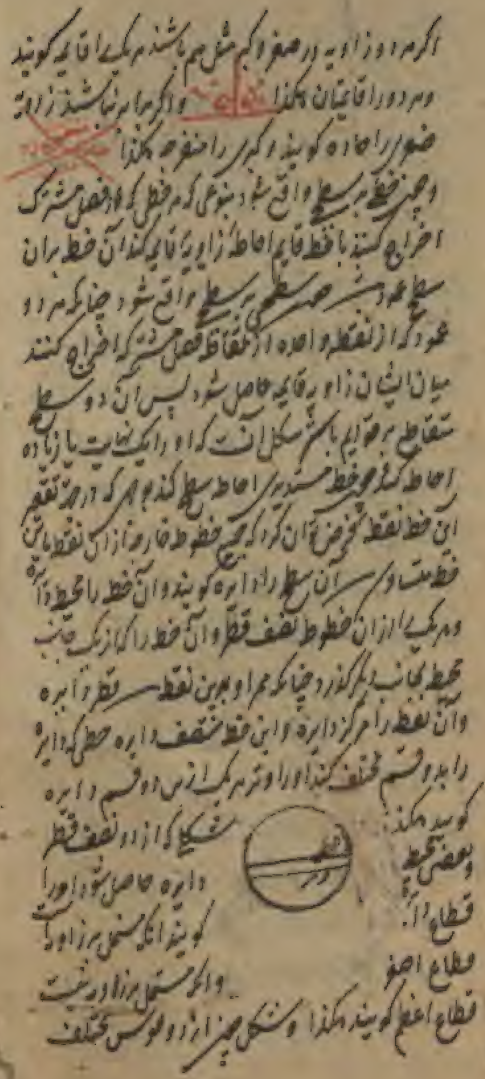 اگر هر دو زاویه در صغر و کبر مثل هم باشند هر یکی را قایمه گویند
و هر دو را قایمتان هکذا و اگر برابر نباشند زاویه
صغری را حاده گویند و کبری را منفرجه هکذا
و چون خطی بر سطحی واقع شود بنوعی که هر خطی که از فصل مشترک
اخراج کنند با خط قایم احاطه زاویه قایمه کند آن خط بر آن
سطح عمود باشد سطحی بر سطحی واقع شود چنانکه هر دو
عمود که از نقطه واحده از نقاط فصل مشترک اخراج کنند
میان ایشان زاویه قایمه حاصل شود پس آن دو سطح
متقاطع بر قوایم باشند شکل آنست که او را یک نهایت یا زیاده
احاطه کند چون خط مستدیری احاطه سطحی کند که در حیز تقعر
آن خط نقطه فرض توان کرد که جمیع خطوط خارجه از آن نقطه باین
خط متساوی آن سطح را دایره گویند و آن خط را محیط دایره
و هر یکی از آن خطوط نصف قطر و آن خط را که از یک جانب
محیط بجانب دیگر گذرد چنانکه ممر او بدین نقطه قطر دایره
و آن نقطه را مرکز دایره و این خط منصف دایره خطی که دایره
را بدو قسم مختلف کند او را وتر هر یک ازین دو قسم دایره
گویند هکذا
قطر
وتر
شکلی که از دو نصف قطر
و بعضی محیط
دایره حاصل شود او را
قطاع دایره
گویند آنکه مشتمل بر زاویه
قطاع اصغر
و آنکه مشتمل بر زاویه نیست
قطاع اعظم گویند هکذا و شکلی چون از دو قوس مختلف